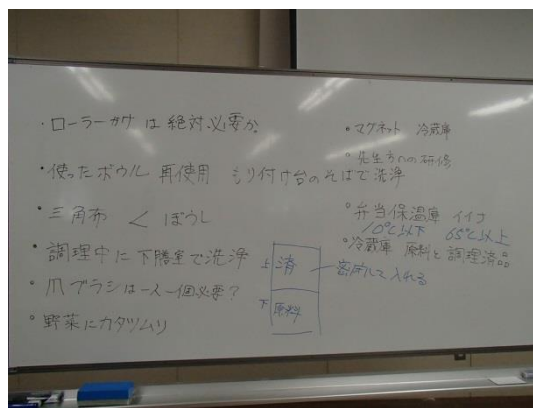 ・ローラーがけは絶対必要か
・使ったボウル 再使用 もり付け台のそばで洗浄
・三角布 < ぼうし
・調理中に下膳室で洗浄
・爪ブラシは一人一個必要?
・野菜にカタツムリ
・マグネット 冷蔵庫
・先生方への研修
・弁当保温庫
10℃以下 65℃以上
・冷蔵庫 原料と調理済品
上 済 密閉して入れる
下 原料